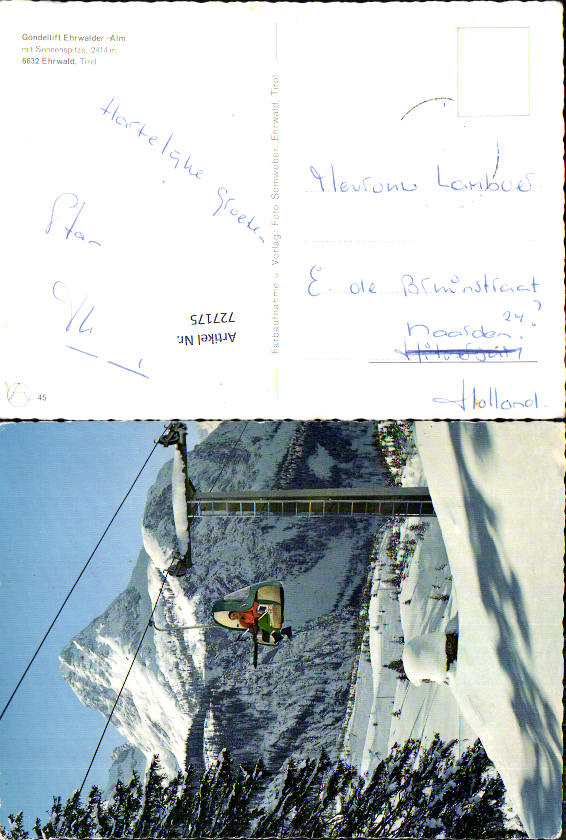 Gondellift Ehrwalder-Alm
mit Sonnenspitze, 2414 m,
6632 Ehrwald, Tirol
Hartelijke
Groeten
Farbaufnahme u. Verlag: Foto Somweber, Ehrwald, Tirol
Mevrouw Lamboer
E. de Bruinstraat
24?
Naarden.
Hilversum
Holland.
Artikel Nr.
727175
45